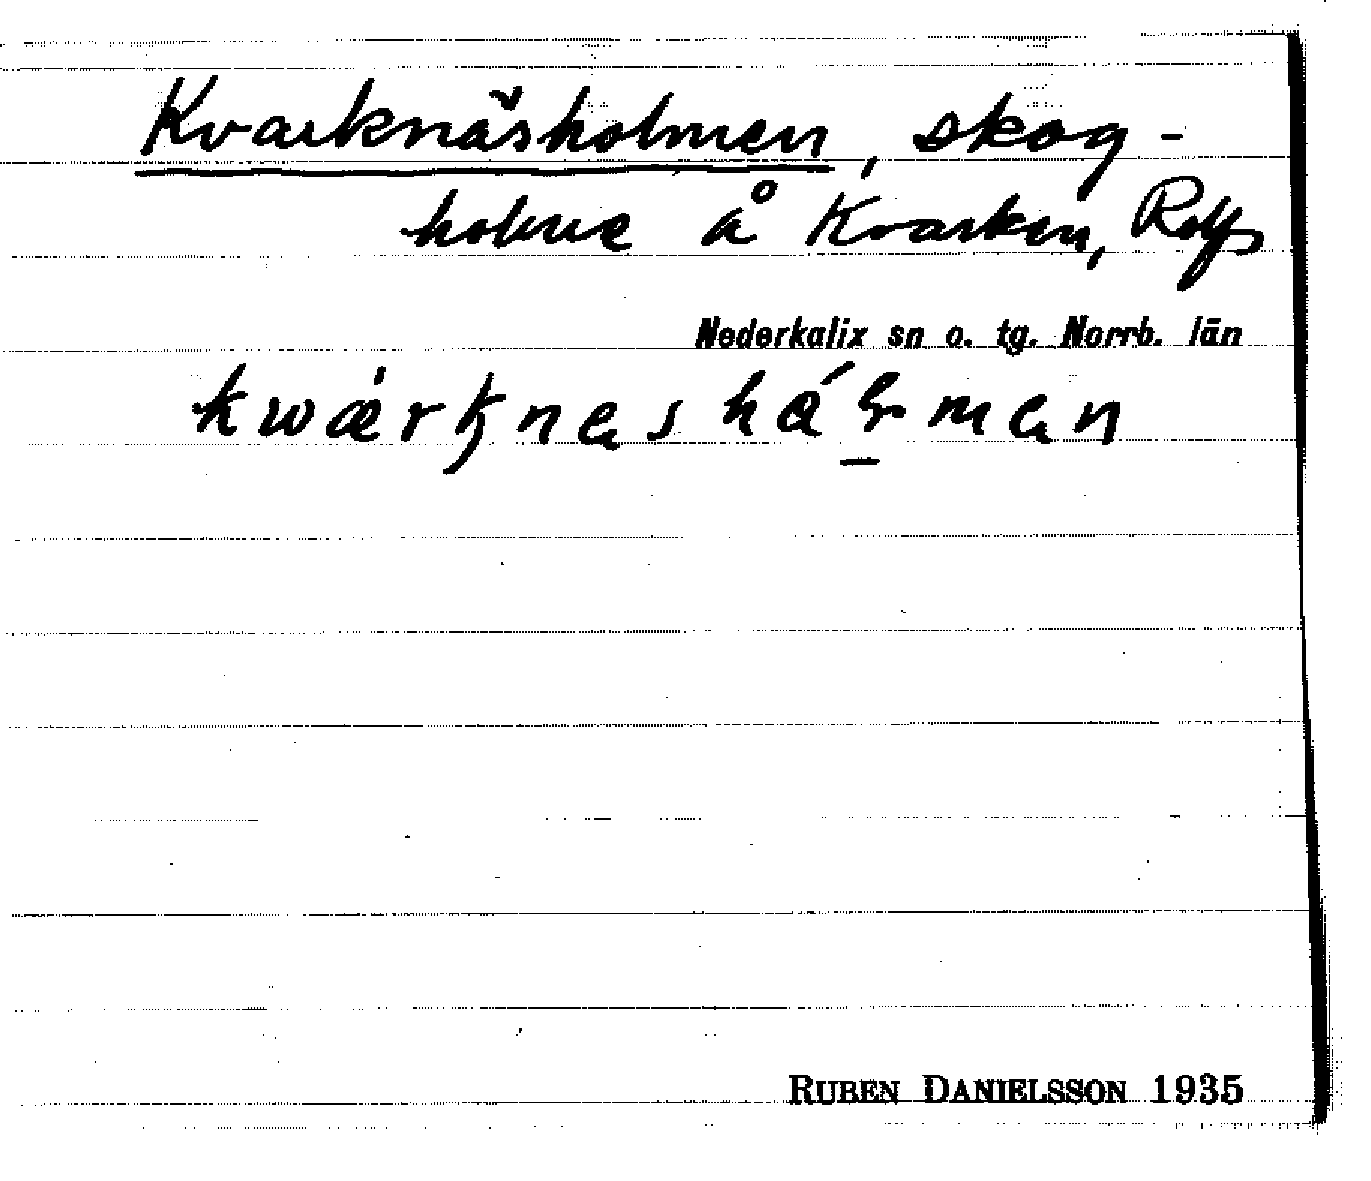 Kvarknäsholmen, skog-
holme å Kvarken, Rolfs
Nederkalix sn o. tg. Norrb. län
Ruben Danielsson 1935